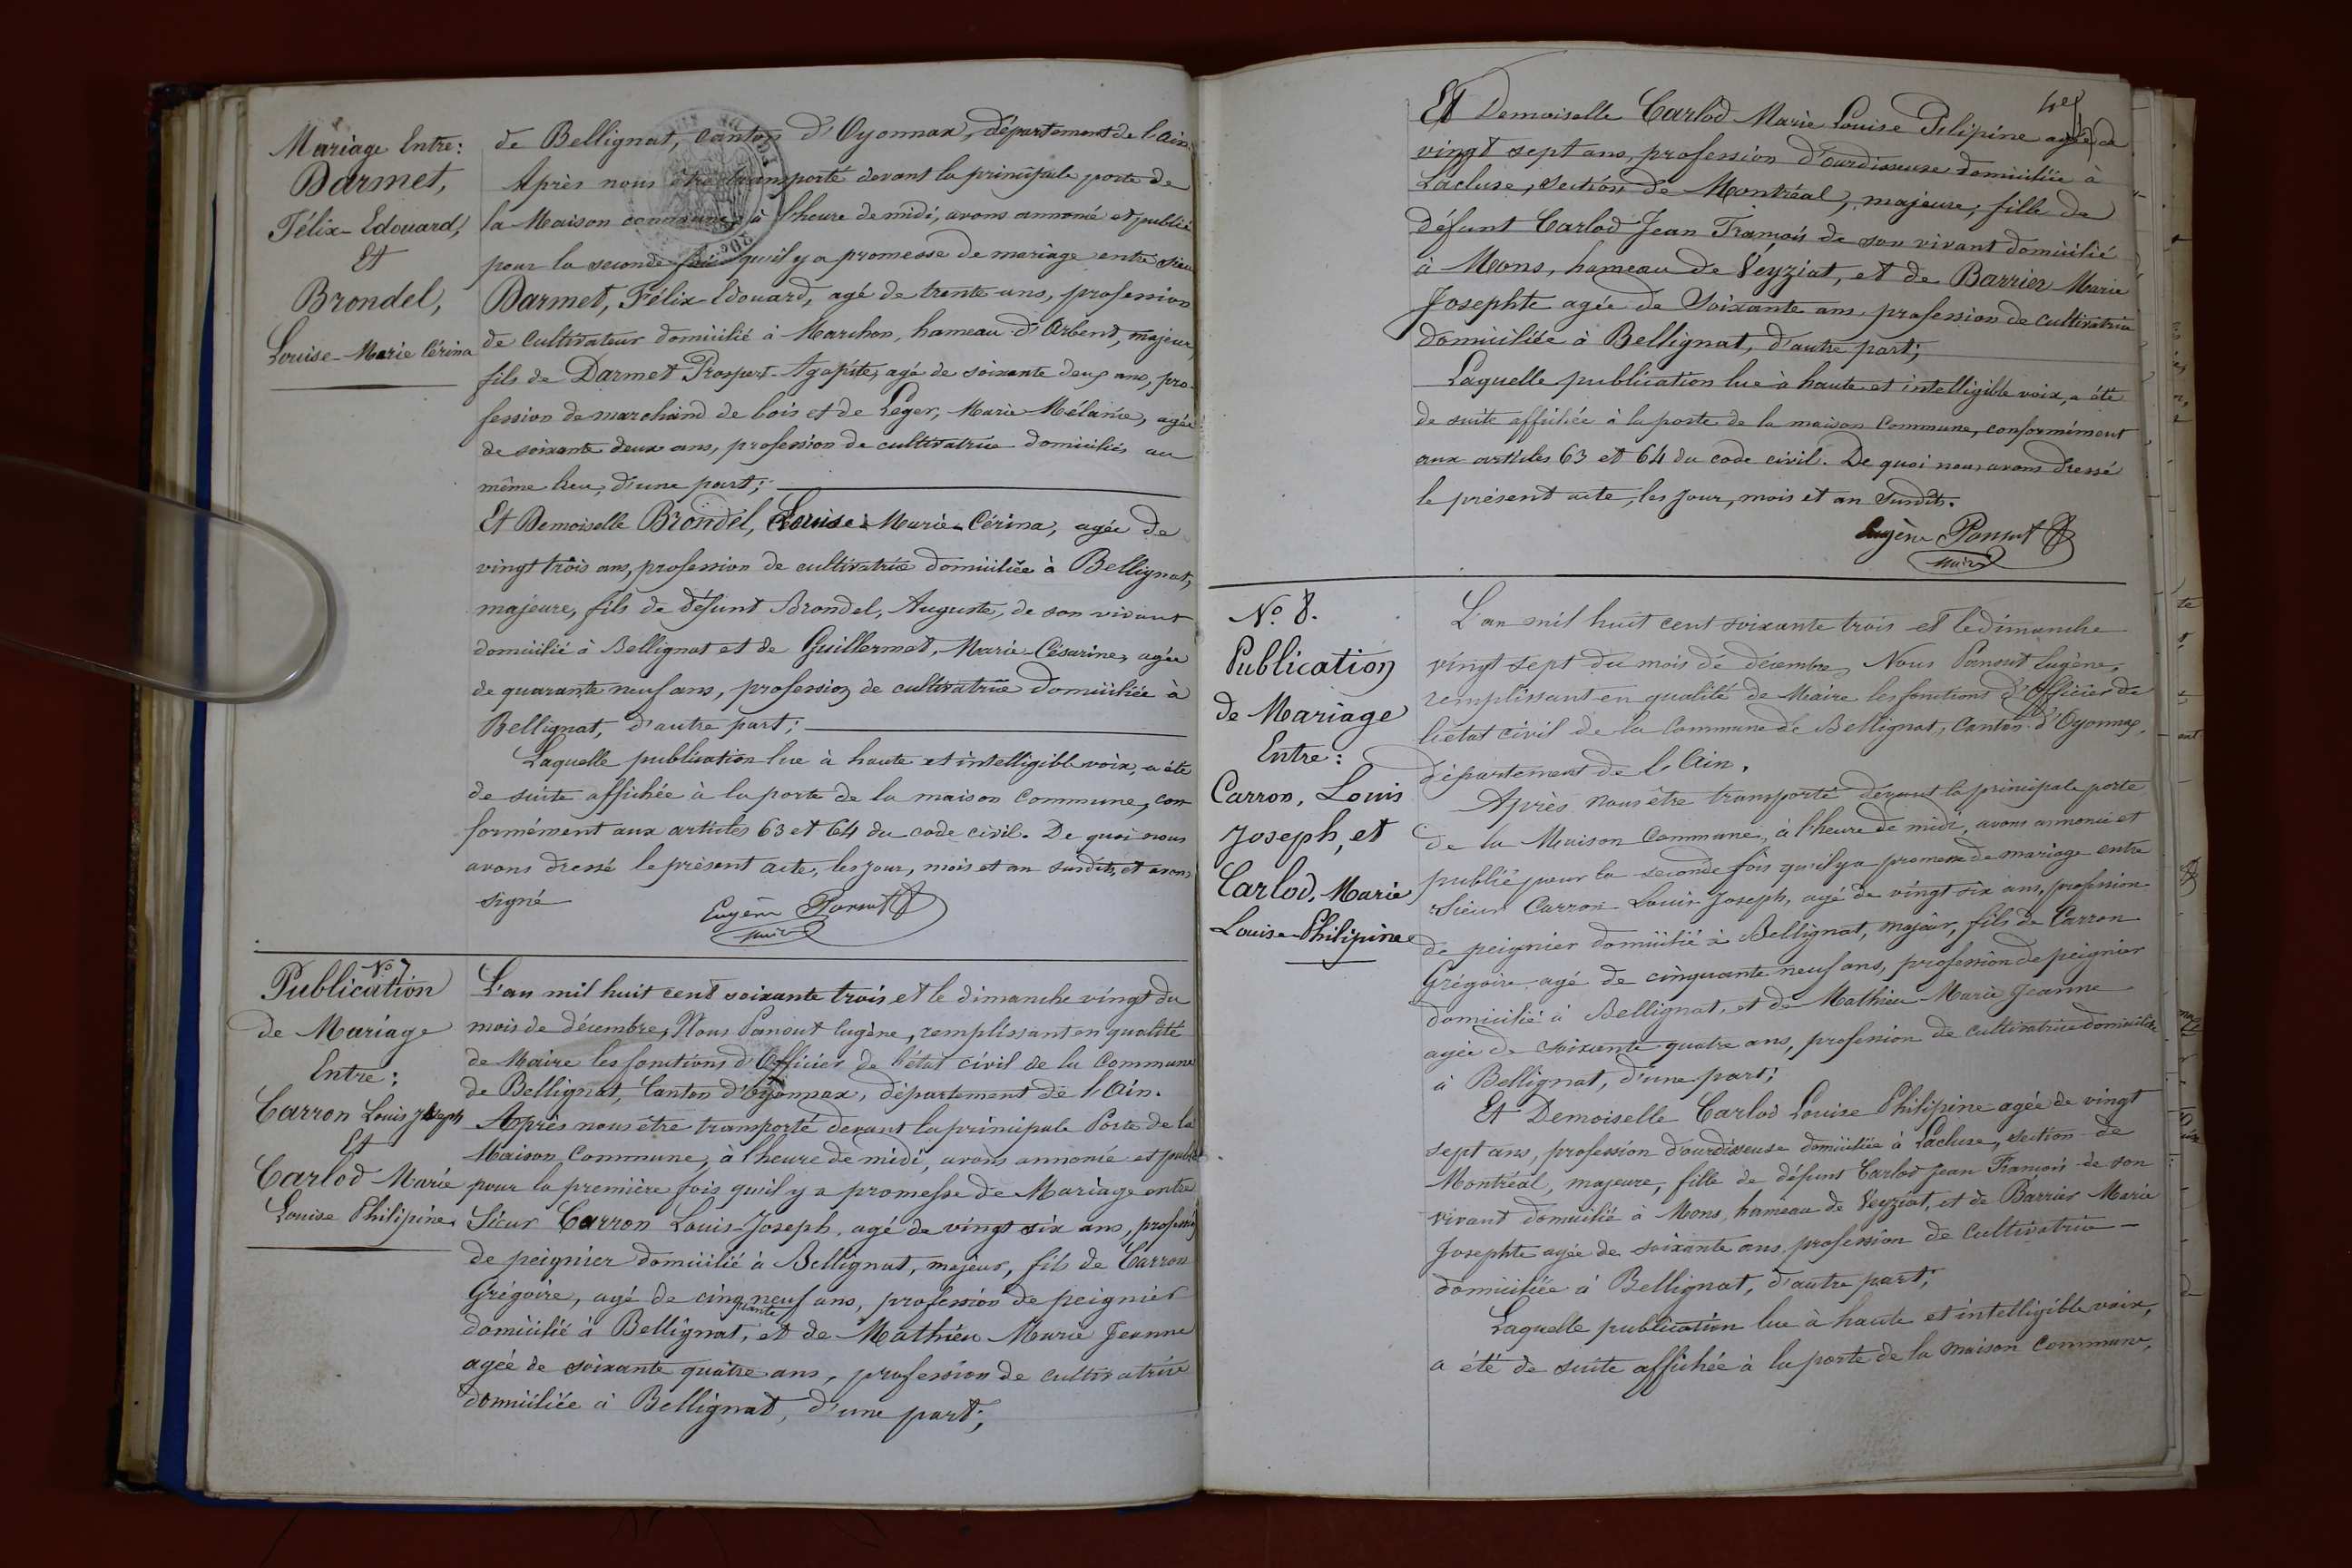 Mariage Entre:
Darmet,
Félix-Edouard,
Et
Brondel,
Louise-Marie Cérina
de Bellignat, canton d'Oyonnax, département de l'ain.
Après nous être transporté devant la principale porte de
la Maison commune, à l'heure de midi, avons annoncé et publié
pour la seconde fois qu'il y a promesse de mariage entre sieur
Darmet, Félix Edouard, agé de trente ans, profession
de cultivateur domicilié à Marchon, hameau d'Arbent, majeur,
fils de Darmet Prospert-Agapite, agé de soixante deux ans, pro-
fession de marchand de bois et de Léger, Marie Mélanie, agée
de soixante deux ans, profession de cultivatrice domiciliés au
même lieu, d'une part;
Et Demoiselle Brondel, Louise-Marie-Cérina, agée de
vingt trois ans, profession de cultivatrice domiciliée à Bellignat,
majeure, fils de défunt Brondel, Auguste, de son vivant
domicilié à Bellignat et de Guillermet, Marie-Césarine, agée
de quarante neuf ans, profession de cultivatrice domiciliée à
Bellignat, d'autre part;
Laquelle publication lue à haute et intelligible voix, a été
de suite affichée à la porte de la maison commune, con
formément aux articles 63 et 64 du code civil. De quoi nous
avons dressé le présent acte, les jour, mois et an susdits, et avons
signé
Eugène Ponsut
maire
No 7
Publication
de Mariage
Entre:
Carron Louis Joseph
Et
Carlod Marie
Louise Philipine
L'an mil huit cent soixante trois et le dimanche vingt du
mois de décembre, Nous Ponsut Eugène, remplissant en qualité
de Maire les fonctions d'Officier de l'état civil de la Commune
de Bellignat, Canton d'Oyonnax, département de l'Ain.
Après nous être transporté devant la principale Porte de la
Maison Commune, à l'heure de midi, avons annoncé et publié
pour la première fois qu'il y a promesse de Mariage entre
Sieur Carron Louis-Joseph, agé de vingt six ans, profession
de peignier domicilié à Bellignat, majeur, fils de Carron
Grégoire, agé de cinq neuf ans, profession de peignier
quante
domicilié à Bellignat, et de Mathieu Marie Jeanne
agée de soixante quatre ans, profession de cultivatrice
domiciliée à Bellignat, d'une part;
Et Demoiselle Carlod Marie Louise Pilipine agée de
vingt sept ans, profession d'ourdisseuse domiciliée à
Lacluse, section de Montréal, majeure, fille de
défunt Carlod Jean François de son vivant domicilié
à Mons, hameau de Veyziat, et de Barrier Marie
Josephte agée de Soixante ans profession de cultivatrice
domiciliée à Bellignat, d'autre part;
Laquelle publication lue à haute et intelligible voix, a été
de suite affichée à la porte de la maison Commune, conformément
aux articles 63 et 64 du code civil. De quoi nous avons dressé
le présent acte, les jour, mois et an susdits.
Eugène Ponsut
maire
No. 8.
Publication
de Mariage
Entre:
Carron, Louis
Joseph, et
Carlod, Marie
Louise-Philipine
L'an mil huit cent soixante trois et le dimanche
vingt sept du mois de décembre, Nous Ponsut Eugène,
remplissant en qualité de Maire les fonctions d'Officier de
l'état civil de la Commune de Bellignat, Canton d'Oyonnax,
département de l'Ain.
Après nous être transporté devant la principale porte
de la Maison Commune, à l'heure de midi, avons annoncé et
publié pour la seconde fois qu'il y a promesse de mariage entre
Sieur Carron Louis Joseph, agé de vingt six ans, profession
de peignier domicilié à Bellignat, majeur, fils de Carron
Grégoire, agé de cinquante neuf ans, profession de peignier
domicilié à Bellignat, et de Mathieu Marie Jeanne
agée de soixante quatre ans, profession de cultivatrice domiciliée
à Bellignat, d'une part;
Et Demoiselle Carlod Louise Philipine agée de vingt
sept ans, profession d'ourdisseuse domiciliée à Lacluse, section de
Montréal, majeure, fille de défunt Carlod Jean François de son
vivant domicilié à Mons, hameau de Veyziat, et de Barrier Marie
Josephte agée de soixante ans profession de cultivatrice
domiciliée à Bellignat, d'autre part;
Laquelle publication lue à haute et intelligible voix,
a été de suite affichée à la porte de la maison commune,